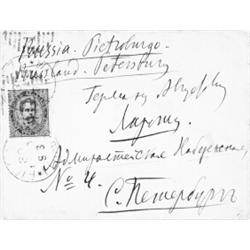 Russia. Pietroburgo.
Russland. Petersburg
Герману Августу
Ларошу
Адмиралтейская Набережная,
No 4.
С. Петербург